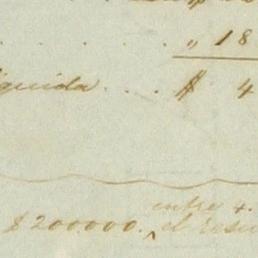 " 18
quida . . . $ 4
entre 4.
$200000. el